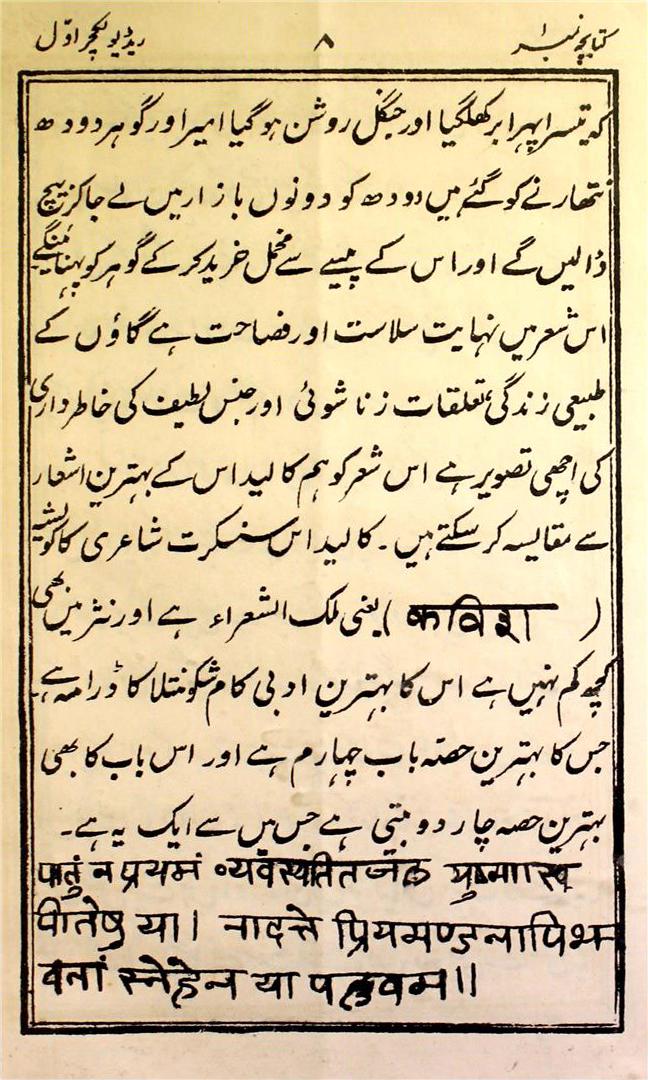 کتابچہ نمبر ۱ ۸ ریڈیو لکچر اوّل
کہ تیسرا پہر ابر کھلگیا اور جنگل روشن ہو گیا امیر اور گوہر دودھ
نتھارنے کو گئے ہیں دودھ کو دونوں بازار میں لے جا کر بیچ
ڈالیں گے اور اس کے پیسے سے مخمل خرید کر کے گوہر کو پہنائینگے
اس شعر میں نہایت سلاست اور فصاحت ہے گاؤں کے
طبیعی زندگی، تعلقات زنا شوئی اور جنس لطیف کی خاطر داری
کی اچھی تصویر ہے اس شعر کو ہم کالیداس کے بہترین اشعار
سے مقایسہ کر سکتے ہیں۔ کالیداس سنسکرت شاعری کا کویشہ
(कविश) یعنی ملک الشعراء ہے اور نثر میں بھی
کچھ کم نہیں ہے اس کا بہترین ادبی کام شکونتلا کا ڈرامہ ہے
جس کا بہترین حصہ باب چہارم ہے اور اس باب کا بھی
بہترین حصہ چار دو بیتی ہے جس میں سے ایک یہ ہے۔
पातुं न प्रथमं व्यवस्यतित जल युष्मास्व
पीतेषु या। नादत्ते प्रियमण्डनापि भ
वतां स्नेहेन या पल्लवम॥